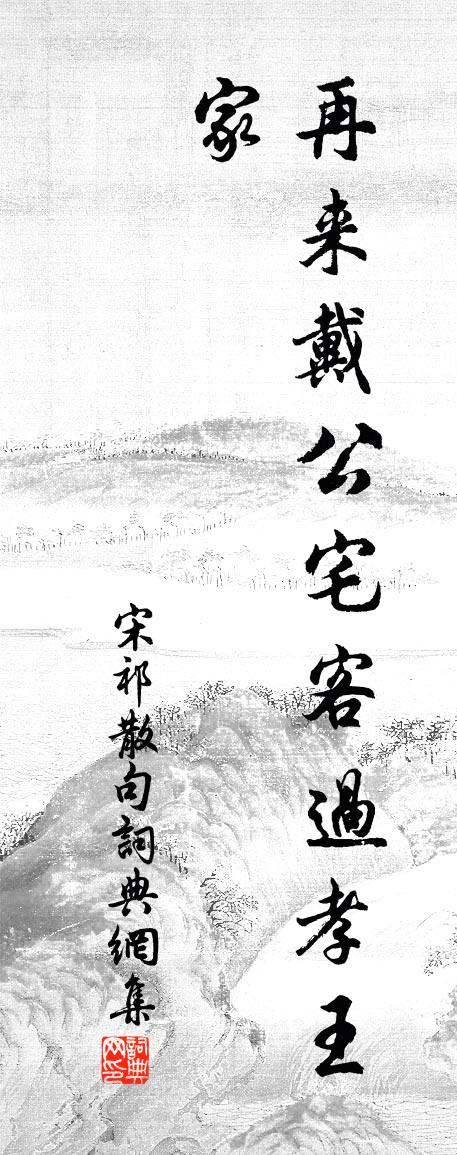 再来戴公宅客過孝王
家
宋祁散句詞典網集
詞典
网印